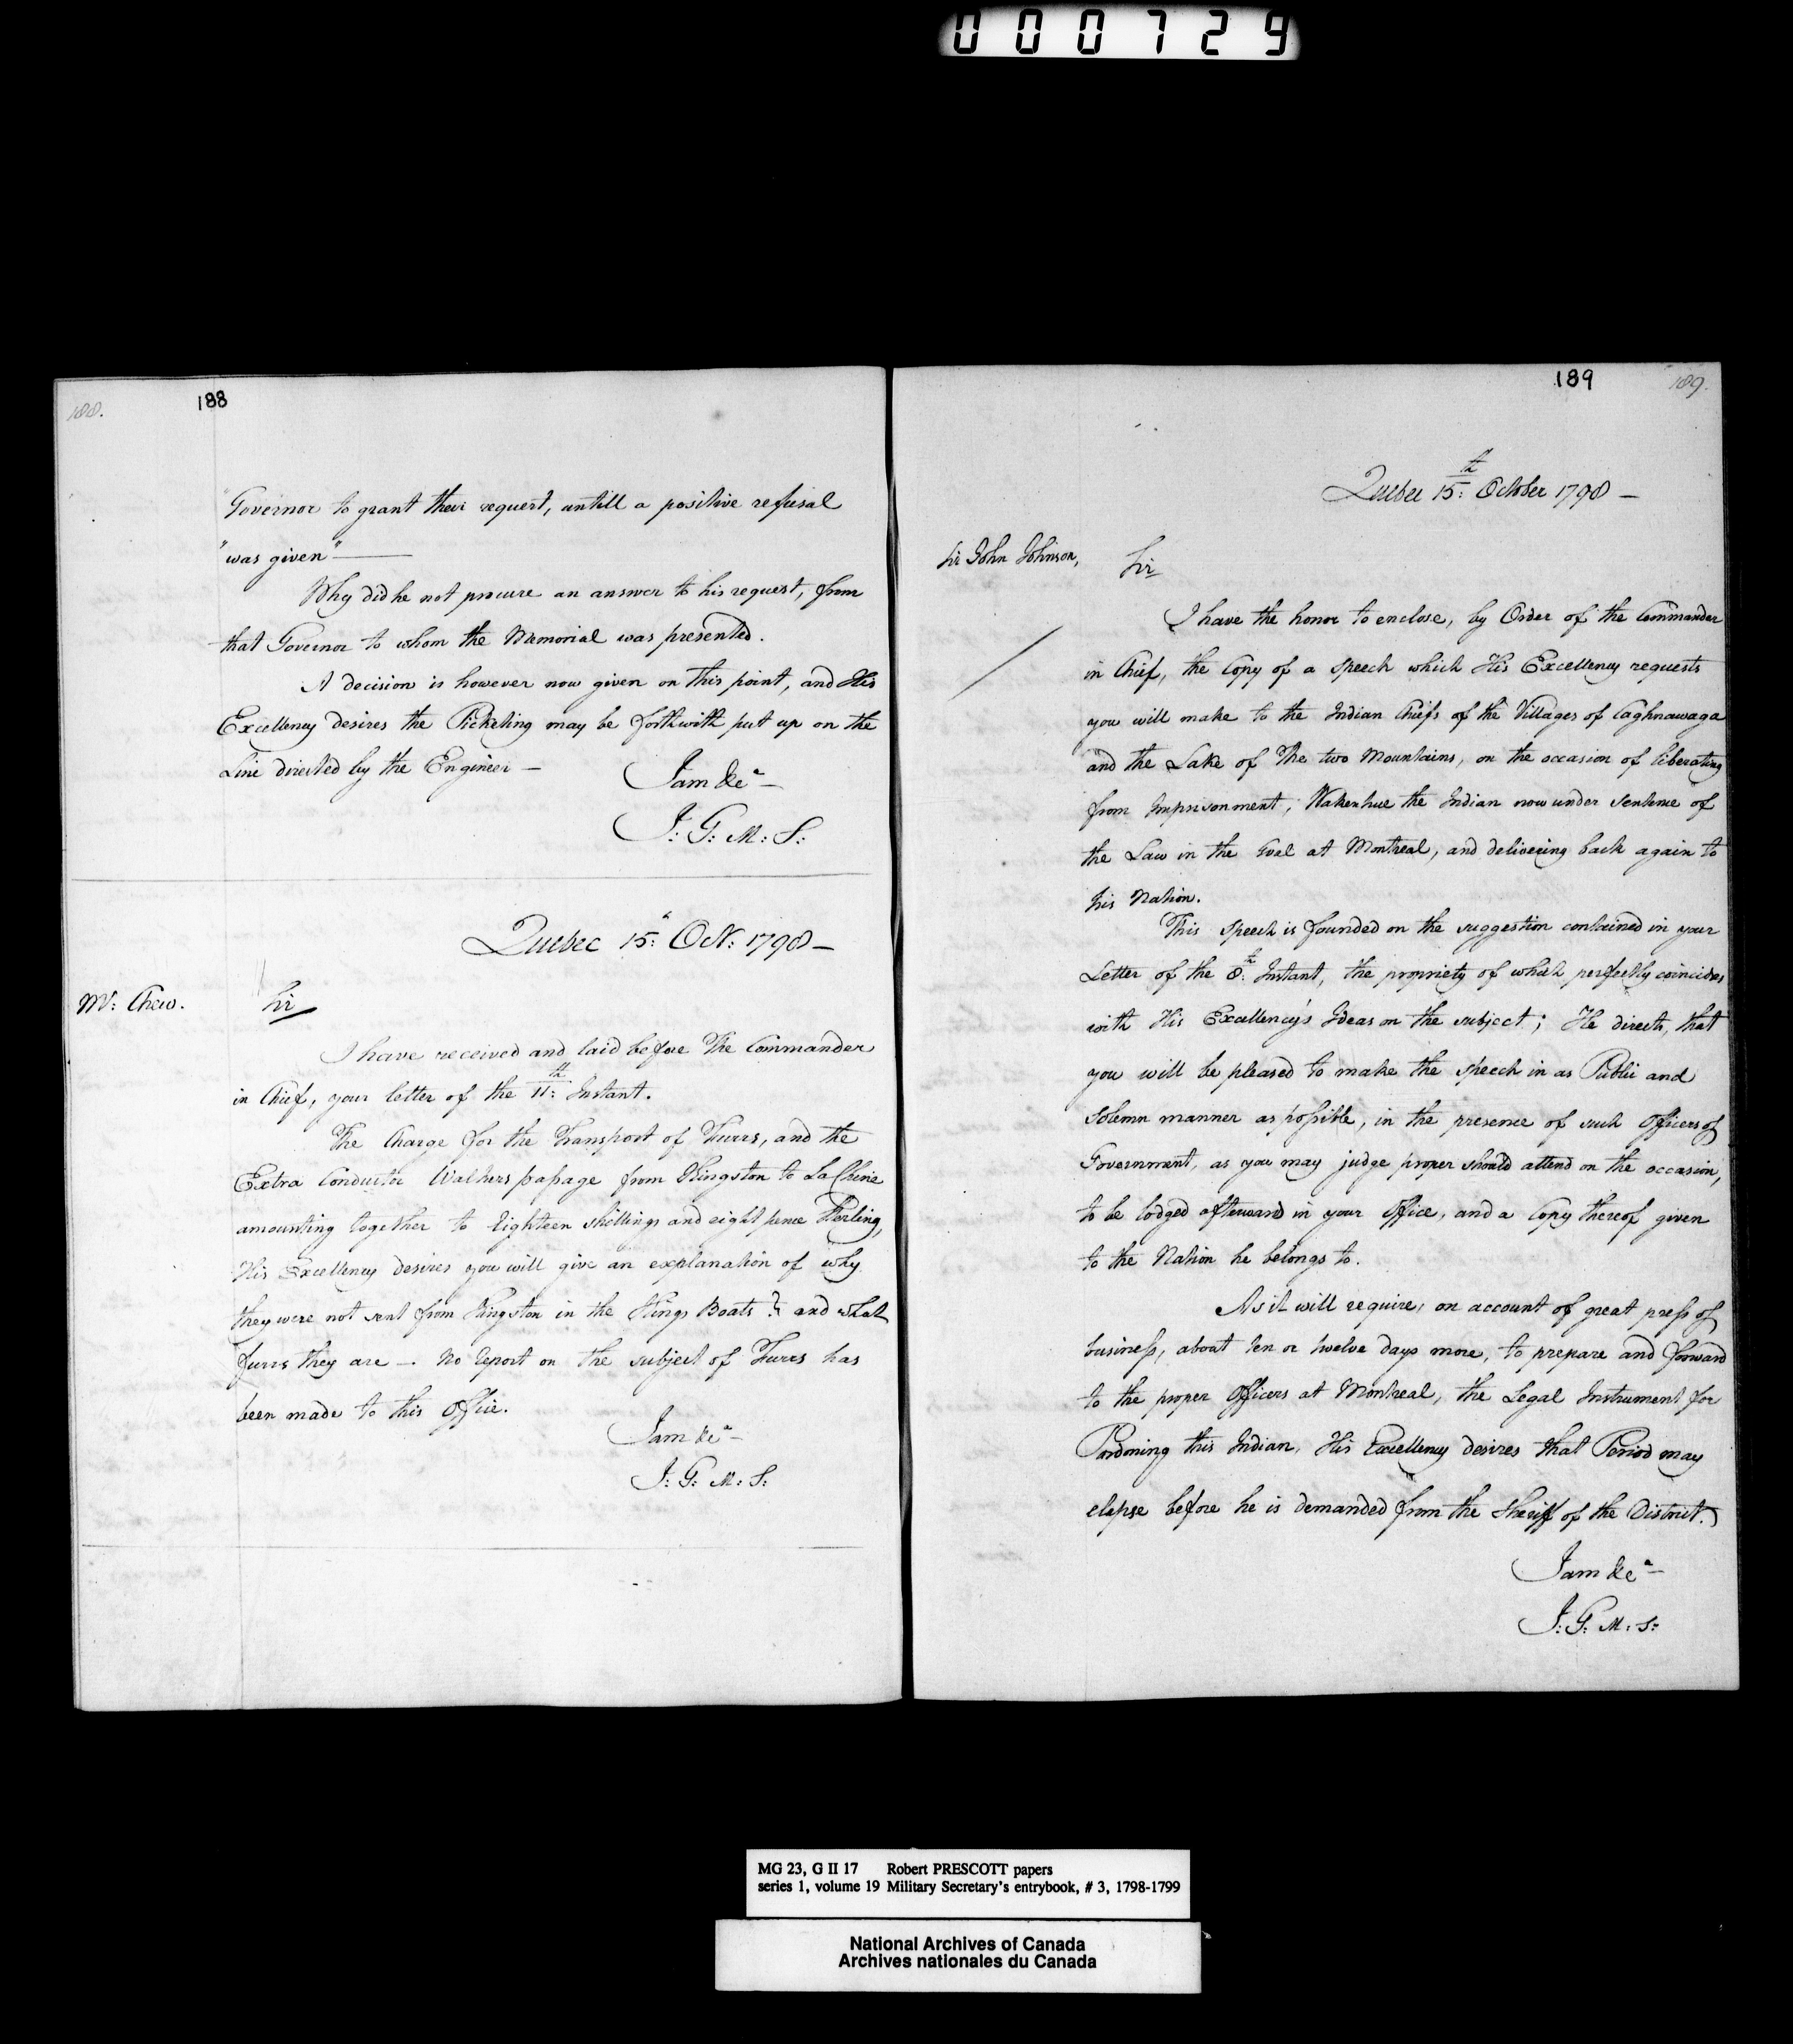 000729
188.
188
"Governor to grant their request, untill a positive refusal
"was given"
Why did he not procure an answer to his request, from
that Governor to whom the Memorial was presented.
A decision is however now given on this point, and His
Excellency desires the Picketing may be forthwith put up on the
Line directed by the Engineer —
I am &ca —
J: G: M: S:
Quebec 15: Oct: 1798 —
Mr: Chew.
Sir
I have received and laid before The Commander
in Chief, your letter of the 11:th Instant.
The Charge for the Transport of Furrs, and the
Extra Conductor Walkers passage from Kingston to La Chine
amounting together to Eighteen shillings and eight pence Sterling,
His Excellency desires you will give an explanation of why
they were not sent from Kingston in the Kings Boats? and what
furrs they are —. No report on the subject of Furrs has
been made to this Office.
I am &ca —
J: G: M: S:
189
189.
Quebec 15:th October 1798 —
Sir John Johnson,
Sir
I have the honor to enclose, by Order of the Commander
in Chief, the Copy of a Speech which His Excellency requests
you will make to the Indian Chiefs of the Villages of Caghnawaga
and the Lake of The two Mountains, on the occasion of liberating
from Imprisonment, Wakenhue the Indian now under Sentence of
the Law in the Goal at Montreal, and delivering back again to
his Nation.
This Speech is founded on the suggestion contained in your
Letter of the 8:th Instant, the propriety of which perfectly coincides
with His Excellency's Ideas on the subject; He directs, that
you will be pleased to make the Speech in as Public and
Solemn manner as possible, in the presence of such Officers of
Government, as you may judge proper should attend on the occasion,
to be lodged afterward in your Office, and a Copy thereof given
to the Nation he belongs to.
As it will require, on account of great press of
business, about ten or twelve days more, to prepare and forward
to the proper Officers at Montreal, the Legal Instrument for
Pardoning this Indian, His Excellency desires that Period may
elapse before he is demanded from the Sheriff of the District.
I am &ca —
J: G: M: S:
MG 23, G II 17 Robert PRESCOTT papers
series 1, volume 19 Military Secretary's entrybook, # 3, 1798-1799
National Archives of Canada
Archives nationales du Canada